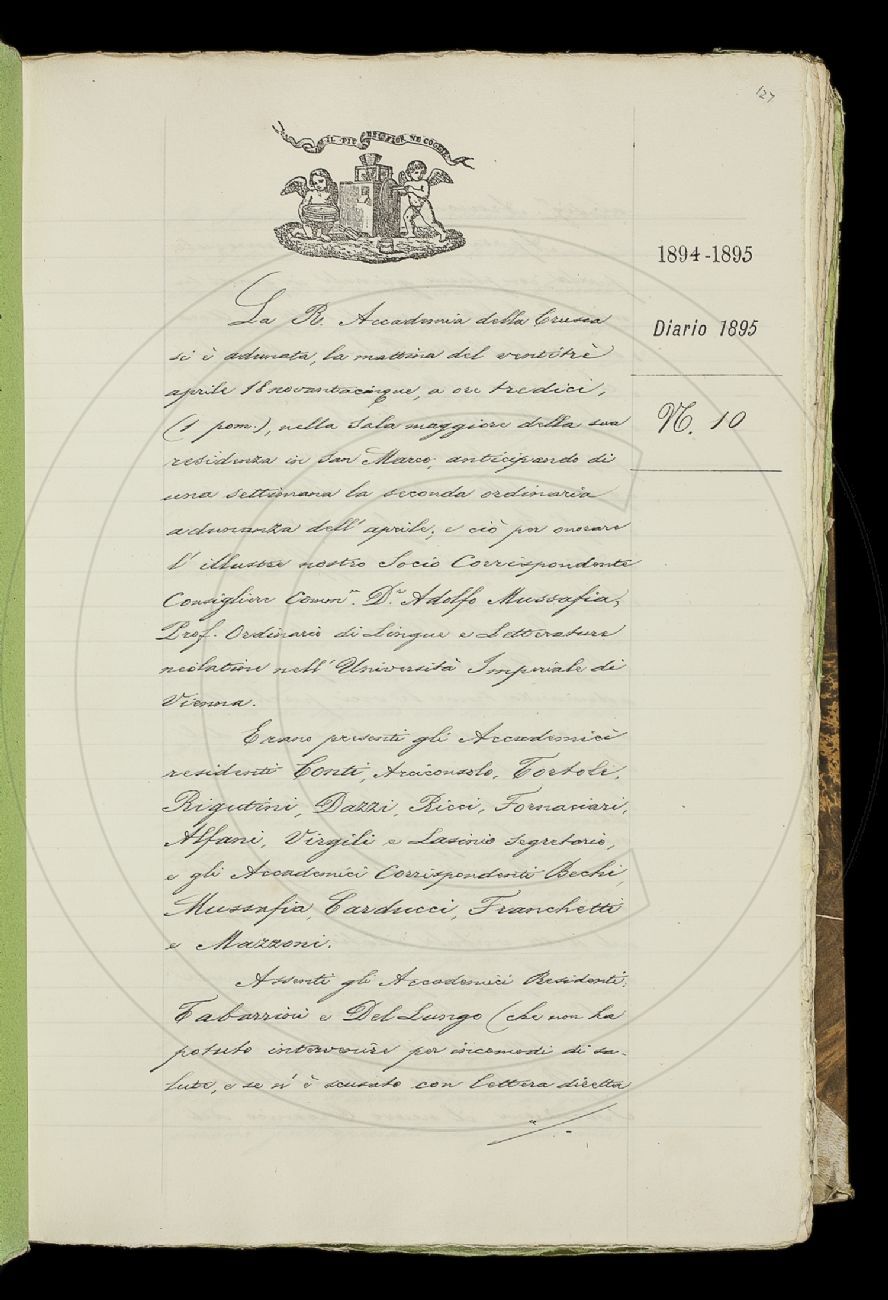 127
IL PIÙ BEL FIOR NE COGLIE
1894-1895
Diario 1895
N. 10
La R. Accademia della Crusca
si è adunata, la mattina del ventitrè
aprile 18novantacinque, a ore tredici,
(1 pom.), nella Sala maggiore della sua
residenza in San Marco, anticipando di
una settimana la seconda ordinaria
adunanza dell'aprile, e ciò per onorare
l'illustre nostro Socio Corrispondente
Consigliere Comm.r D.r Adolfo Mussafia,
Prof. Ordinario di Lingue e Letterature
neolatine nell'Università Imperiale di
Vienna.
Erano presenti gli Accademici
residenti Conti, Arciconsolo, Tortoli,
Rigutini, Dazzi, Ricci, Fornaciari,
Alfani, Virgili e Lasinio Segretario,
e gli Accademici Corrispondenti Bechi,
Mussafia, Carducci, Franchetti
e Mazzoni.
Assenti gli Accademici Residenti
Tabarrini e Del Lungo (che non ha
potuto intervenire per incomodi di sa-
lute, e se n'è scusato con lettera diretta